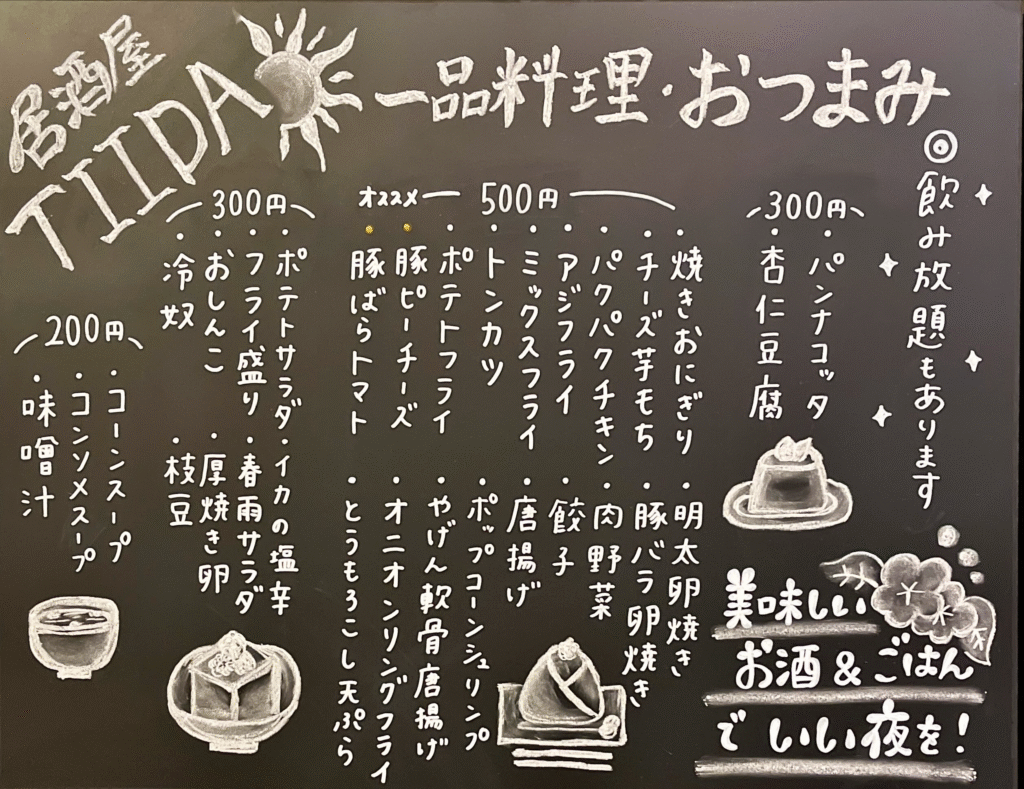 居酒屋
TIIDA
一品料理・おつまみ
◎飲み放題もあります
300円
・パンナコッタ
・杏仁豆腐
オススメ 500円
・焼きおにぎり
・チーズ芋もち
・パクパクチキン
・アジフライ
・ミックスフライ
・トンカツ
・ポテトフライ
・豚ピーチーズ
・豚ばらトマト
・明太卵焼き
・豚バラ卵焼き
・肉野菜
・餃子
・唐揚げ
・ポップコーンシュリンプ
・やげん軟骨唐揚げ
・オニオンリングフライ
・とうもろこし天ぷら
300円
・ポテトサラダ
・フライ盛り
・おしんこ
・冷奴
・イカの塩辛
・春雨サラダ
・厚焼き卵
・枝豆
200円
・コーンスープ
・コンソメスープ
・味噌汁
美味しい
お酒&ごはん
でいい夜を!